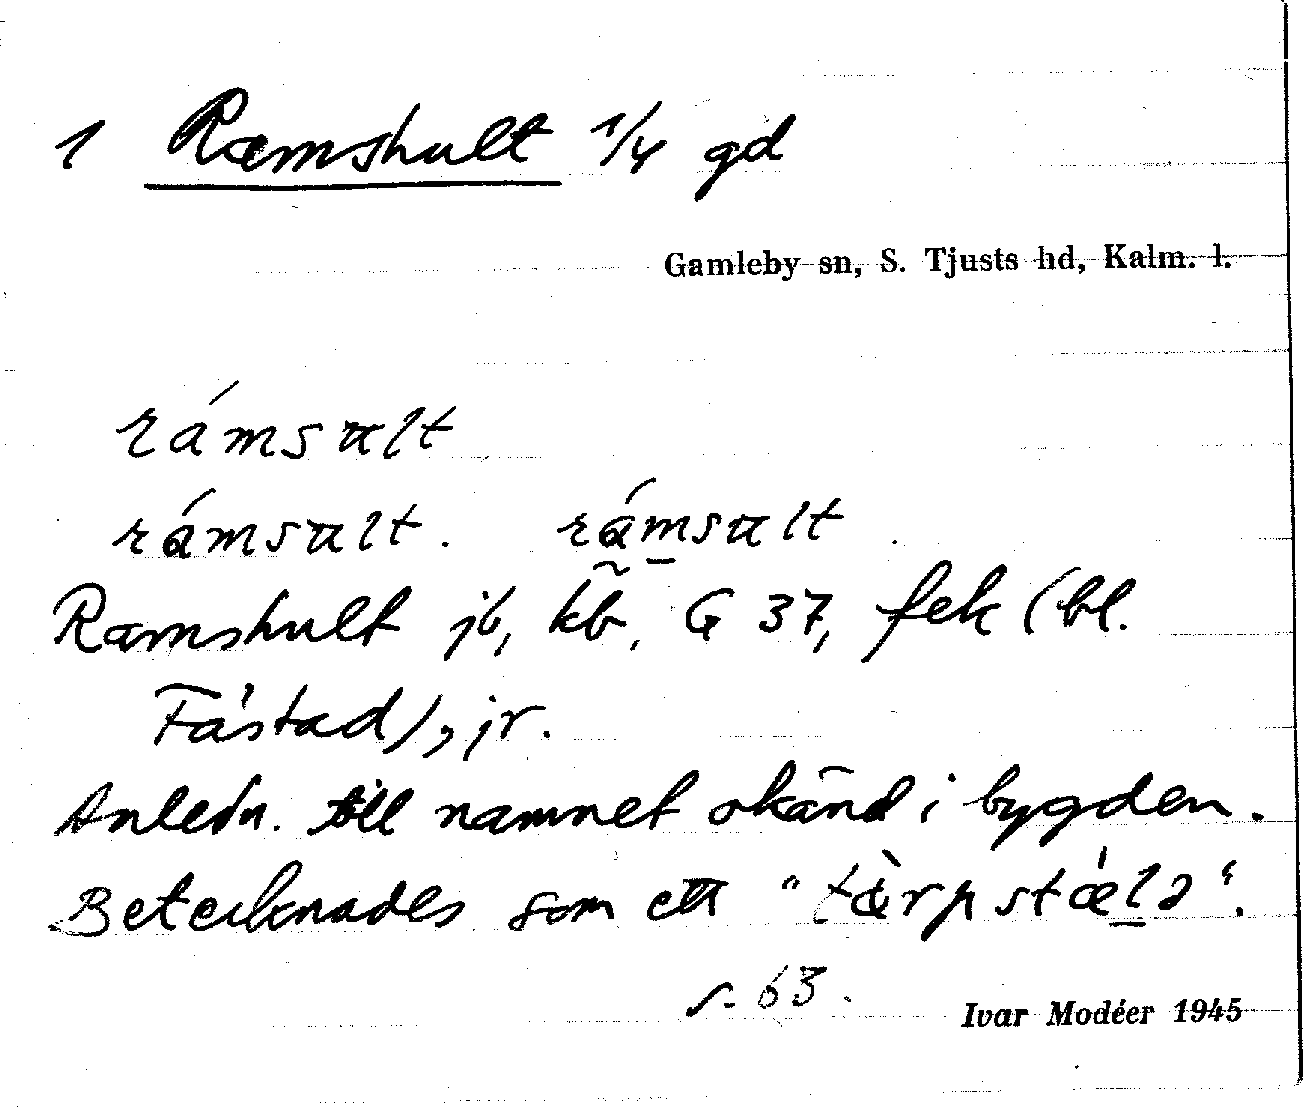 1 Ramshult 1/4 gd
Gamleby sn, S. Tjusts hd, Kalm. l.
rámsult
rámsult. rámsult.
Ramshult jb, kb, G 37, fek (bl.
Fåstad), jr.
Anledn. till namnet okänd i bygden.
Betecknades som ett "tàrpstælə".
s. 63.
Ivar Modéer 1945